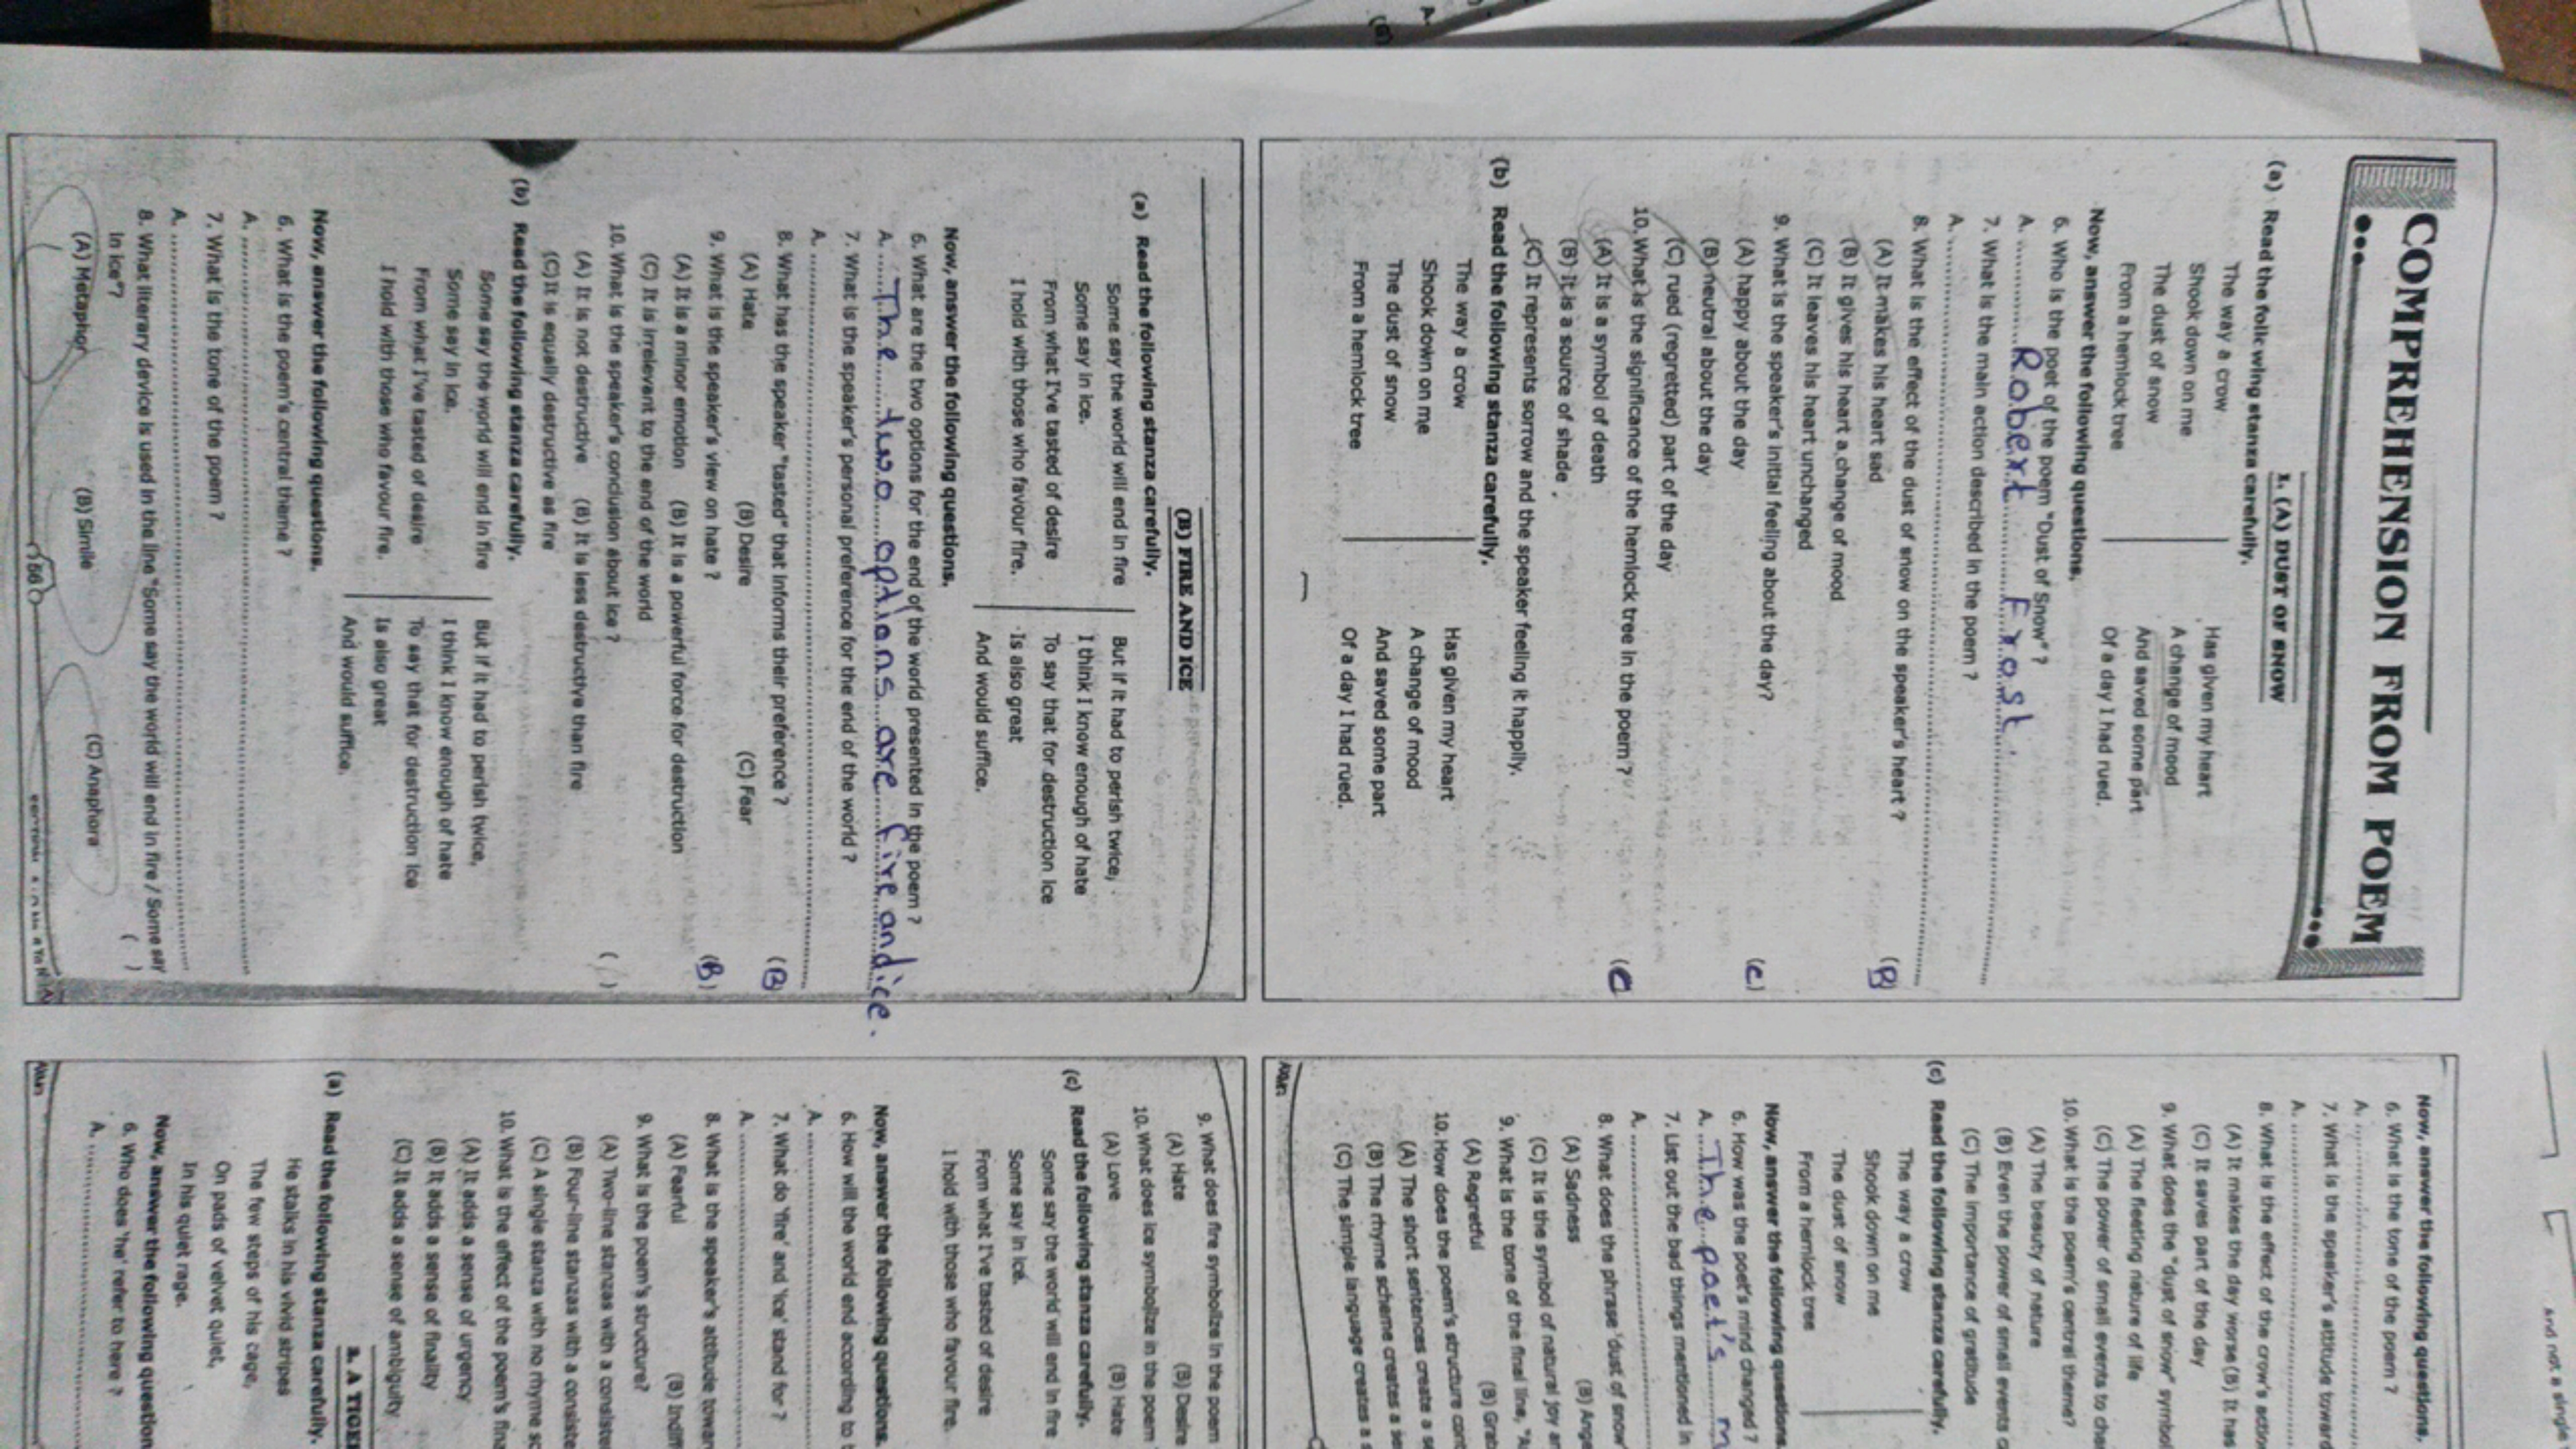 COMPREHENSION FROM POEM
1. (A) DUST OF SNOW
(a) Read the following stanza carefully.
The way a crow
Shook down on me
The dust of snow
From a hemlock tree
Has given my heart
A change of mood
And saved some part
Of a day I had rued.
Now, answer the following questions.
6. Who is the poet of the poem "Dust of Snow" ?
A. Robert Frost.
7. What is the main action described in the poem ?
A.
8. What is the effect of the dust of snow on the speaker's heart ? (B)
(A) It makes his heart sad
(B) It gives his heart a change of mood
(C) It leaves his heart unchanged
9. What is the speaker's initial feeling about the day? (C)
(A) happy about the day
(B) neutral about the day
(C) rued (regretted) part of the day
10. What is the significance of the hemlock tree in the poem ? (C
(A) It is a symbol of death
(B) It is a source of shade
(C) It represents sorrow and the speaker feeling it happily.
(b) Read the following stanza carefully.
The way a crow
Shook down on me
The dust of snow
From a hemlock tree
Has given my heart
A change of mood
And saved some part
Of a day I had rued.
(B) FIRE AND ICE
(a) Read the following stanza carefully.
Some say the world will end in fire
Some say in ice.
From what I've tasted of desire
I hold with those who favour fire.
But if it had to perish twice,
I think I know enough of hate
To say that for destruction ice
Is also great
And would suffice.
Now, answer the following questions.
6. What are the two options for the end of the world presented in the poem ?
A. The two options are fire and ice.
7. What is the speaker's personal preference for the end of the world ?
A.
8. What has the speaker "tasted" that informs their preference ? (B)
(A) Hate (B) Desire (C) Fear
9. What is the speaker's view on hate ? (B)
(A) It is a minor emotion (B) It is a powerful force for destruction
(C) It is irrelevant to the end of the world
10. What is the speaker's conclusion about ice ? ( )
(A) It is not destructive (B) It is less destructive than fire
(C) It is equally destructive as fire
(b) Read the following stanza carefully.
Some say the world will end in fire
Some say in ice.
From what I've tasted of desire
I hold with those who favour fire.
But if it had to perish twice,
I think I know enough of hate
To say that for destruction ice
Is also great
And would suffice.
Now, answer the following questions.
6. What is the poem's central theme ?
A.
7. What is the tone of the poem ?
A.
8. What literary device is used in the line "Some say the world will end in fire / Some say
in ice"? ( )
(A) Metaphor (B) Simile (C) Anaphora
86
Now, answer the following questions.
6. What is the tone of the poem ?
A.
7. What is the speaker's attitude toward
A.
8. What is the effect of the crow's action
(A) It makes the day worse (B) It has
(C) It saves part of the day
9. What does the "dust of snow" symbol
(A) The fleeting nature of life
(C) The power of small events to cha
10. What is the poem's central theme?
(A) The beauty of nature
(B) Even the power of small events c
(C) The importance of gratitude
(c) Read the following stanza carefully.
The way a crow
Shook down on me
The dust of snow
From a hemlock tree
Now, answer the following questions
6. How was the poet's mind changed ?
A. The poet's m
7. List out the bad things mentioned in
A.
8. What does the phrase 'dust of snow'
(A) Sadness (B) Ange
(C) It is the symbol of natural joy an
9. What is the tone of the final line, "A
(A) Regretful (B) Grat
10. How does the poem's structure cont
(A) The short sentences create a se
(B) The rhyme scheme creates a se
(C) The simple language creates a s
9. What does fire symbolize in the poem
(A) Hate (B) Desire
10. What does ice symbolize in the poem
(A) Love (B) Hate
(c) Read the following stanza carefully.
Some say the world will end in fire
Some say in ice.
From what I've tasted of desire
I hold with those who favour fire.
Now, answer the following questions.
6. How will the world end according to t
A.
7. What do 'fire' and 'ice' stand for ?
A.
8. What is the speaker's attitude towar
(A) Fearful (B) Indif
9. What is the poem's structure?
(A) Two-line stanzas with a consiste
(B) Four-line stanzas with a consiste
(C) A single stanza with no rhyme sc
10. What is the effect of the poem's fina
(A) It adds a sense of urgency
(B) It adds a sense of finality
(C) It adds a sense of ambiguity
2. A TIGER
(a) Read the following stanza carefully.
He stalks in his vivid stripes
The few steps of his cage,
On pads of velvet quiet,
In his quiet rage.
Now, answer the following question
6. Who does 'he' refer to here ?
A.
And not a single